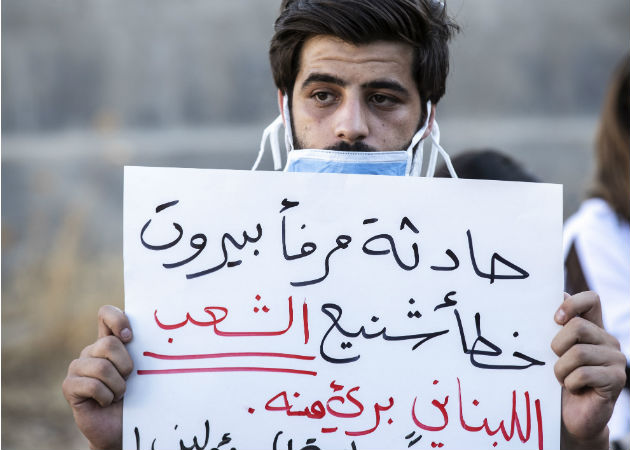 حادثة مرفأ بيروت
خطأ شنيع الشعب
اللبناني بريء منه.